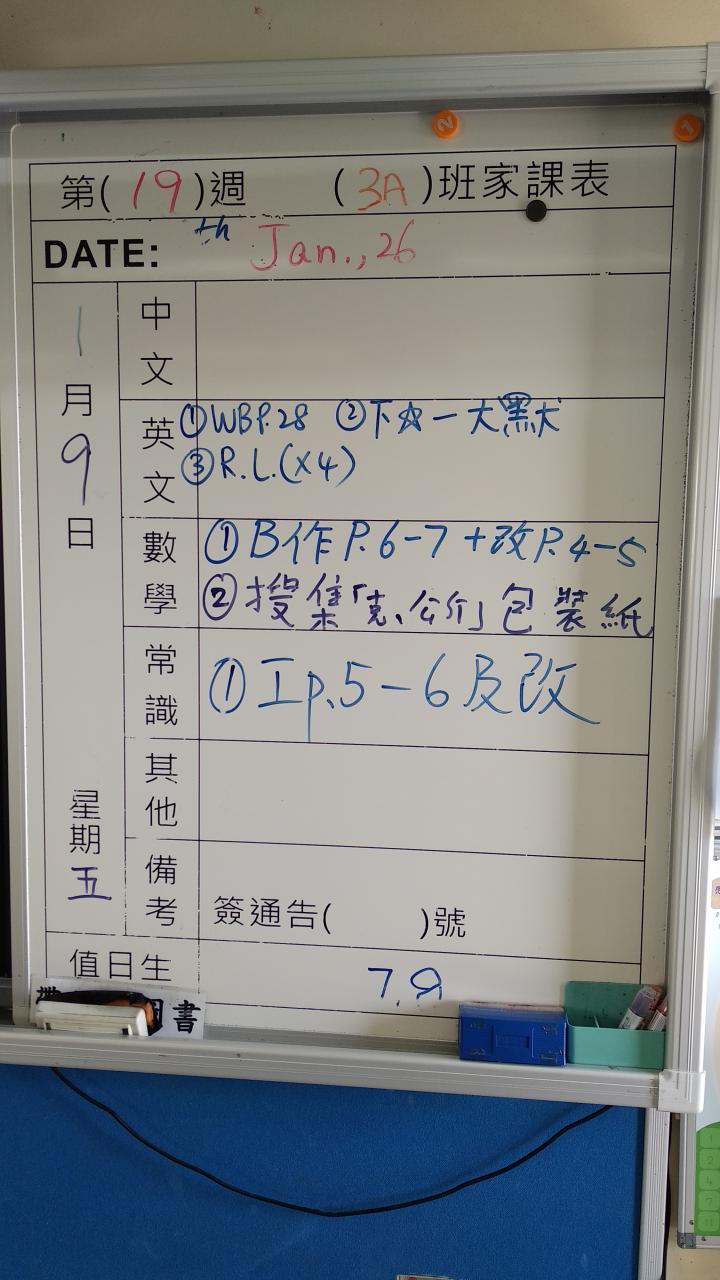 第(19)週 (3A)班家課表
DATE: th Jan.,26
1月9日
星期五
中文
英文
①WBP.28 ②下☆一大默
③R.L.(×4)
數學
①B作P.6-7+改P.4-5
②搜集「克、公斤」包裝紙
常識
①工p.5-6及改
其他
備考
簽通告( )號
值日生
7,9
圖書
2
1